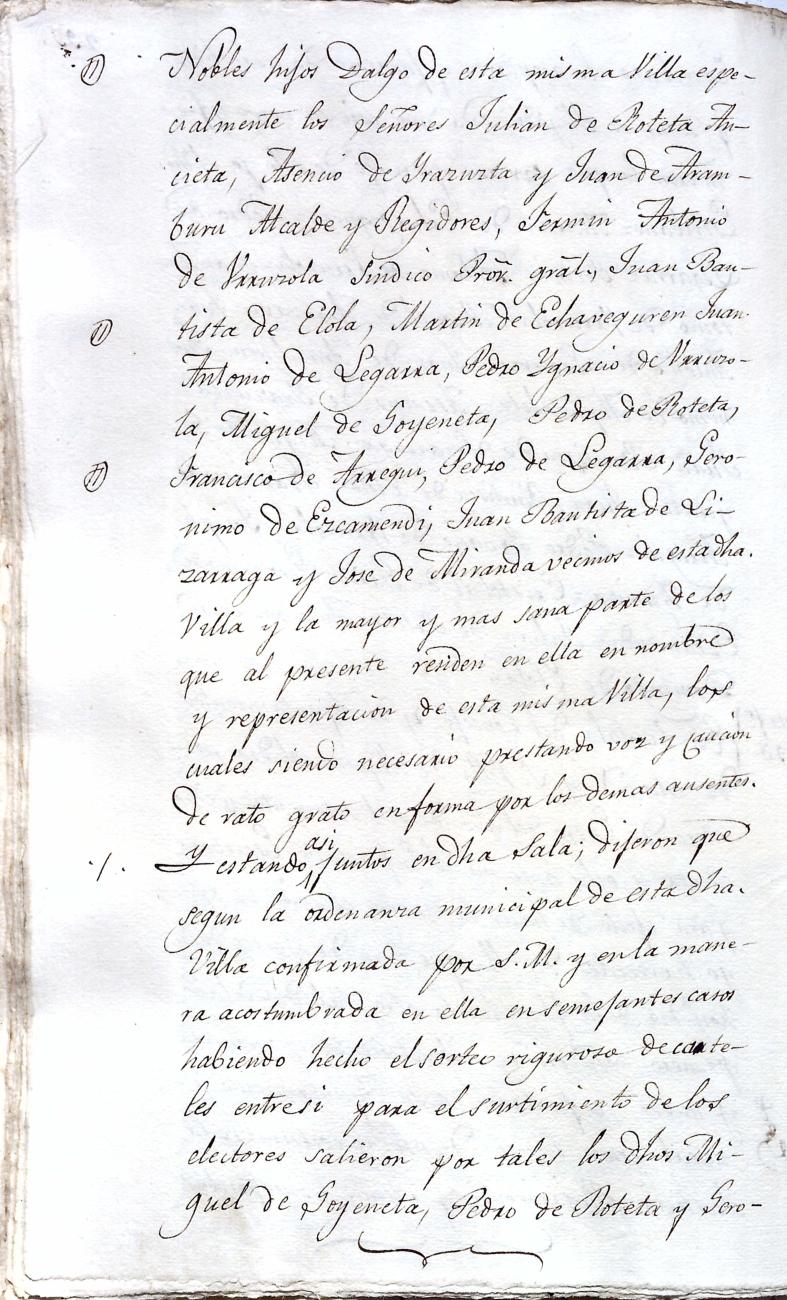 Nobles hijos Dalgo de esta misma Villa espe-
cialmente los Señores Julian de Roteta An-
cieta, Asencio de Yrazuzta y Juan de Aram-
buru Alcalde y Regidores, Fermin Antonio
de Urruzola Sindico Pror. gral., Juan Bau-
tista de Elola, Martin de Echaveguren Juan
Antonio de Legarra, Pedro Ygnacio de Urruzo-
la, Miguel de Goyeneta, Pedro de Roteta,
Francisco de Arregui, Pedro de Legarra, Gero-
nimo de Ezcamendi, Juan Bautista de Li-
zarraga y Jose de Miranda vecinos de esta dha.
Villa y la mayor y mas sana parte de los
que al presente residen en ella en nombre
y representacion de esta misma Villa, los
cuales siendo necesario prestando voz y caucion
de rato grato en forma por los demas ausentes.
./. Y estando asi juntos en dha Sala; dijeron que
segun la ordenanza municipal de esta dha.
Villa confirmada por S.M. y en la mane-
ra acostumbrada en ella en semejantes casos
habiendo hecho el sorteo riguroso de carte-
les entresi para el surtimiento de los
electores salieron por tales los dhos Mi-
guel de Goyeneta, Pedro de Roteta y Gero-